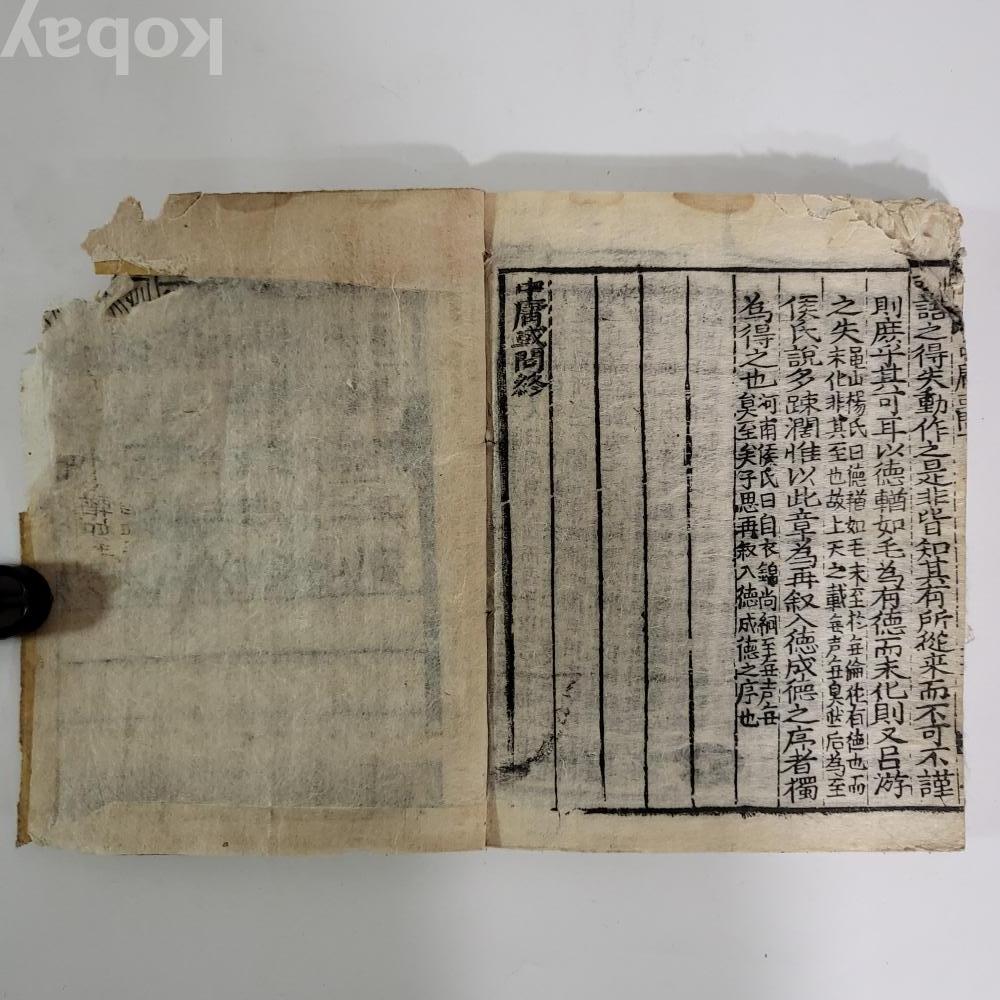 語之得失動作之是非皆知其有所從来而不可不謹
則庶乎其可耳以德輶如毛為有德而未化則又呂游
之失龜山楊氏曰德輶如毛未至於毋倫化有德也而
未化非其至也故上天之載毋声毋臭然后為至
侯氏說多踈濶惟以此章為再叙入德成德之序者獨
為得之也河南侯氏曰自衣錦尚絅至毋声毋
臭至矣子思再叙入德成德之序也
中庸或問終
kobay